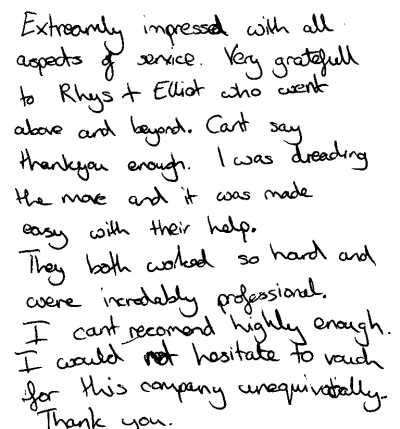 Extreamly impressed with all
aspects of service. Very gratefull
to Rhys + Elliot who went
above and beyond. Cant say
thankyou enough. I was dreading
the move and it was made
easy with their help.
They both worked so hard and
were incredably professional.
I cant recomend highly enough.
I would not hesitate to vouch
for this company unequivocally.
Thank you.